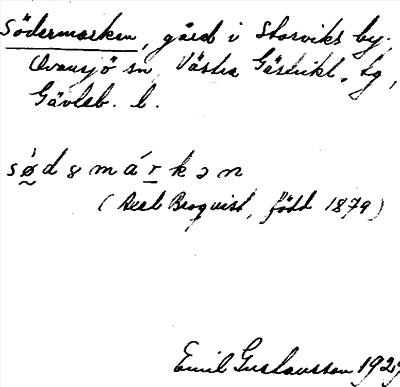 Södermarken, gård i Storviks by,
Ovansjö sn, Västra Gästrikl. tg,
Gävleb. l.
sø̀dəmárkən
( Broqvist, född 1879)
Emil Gustavsson 192